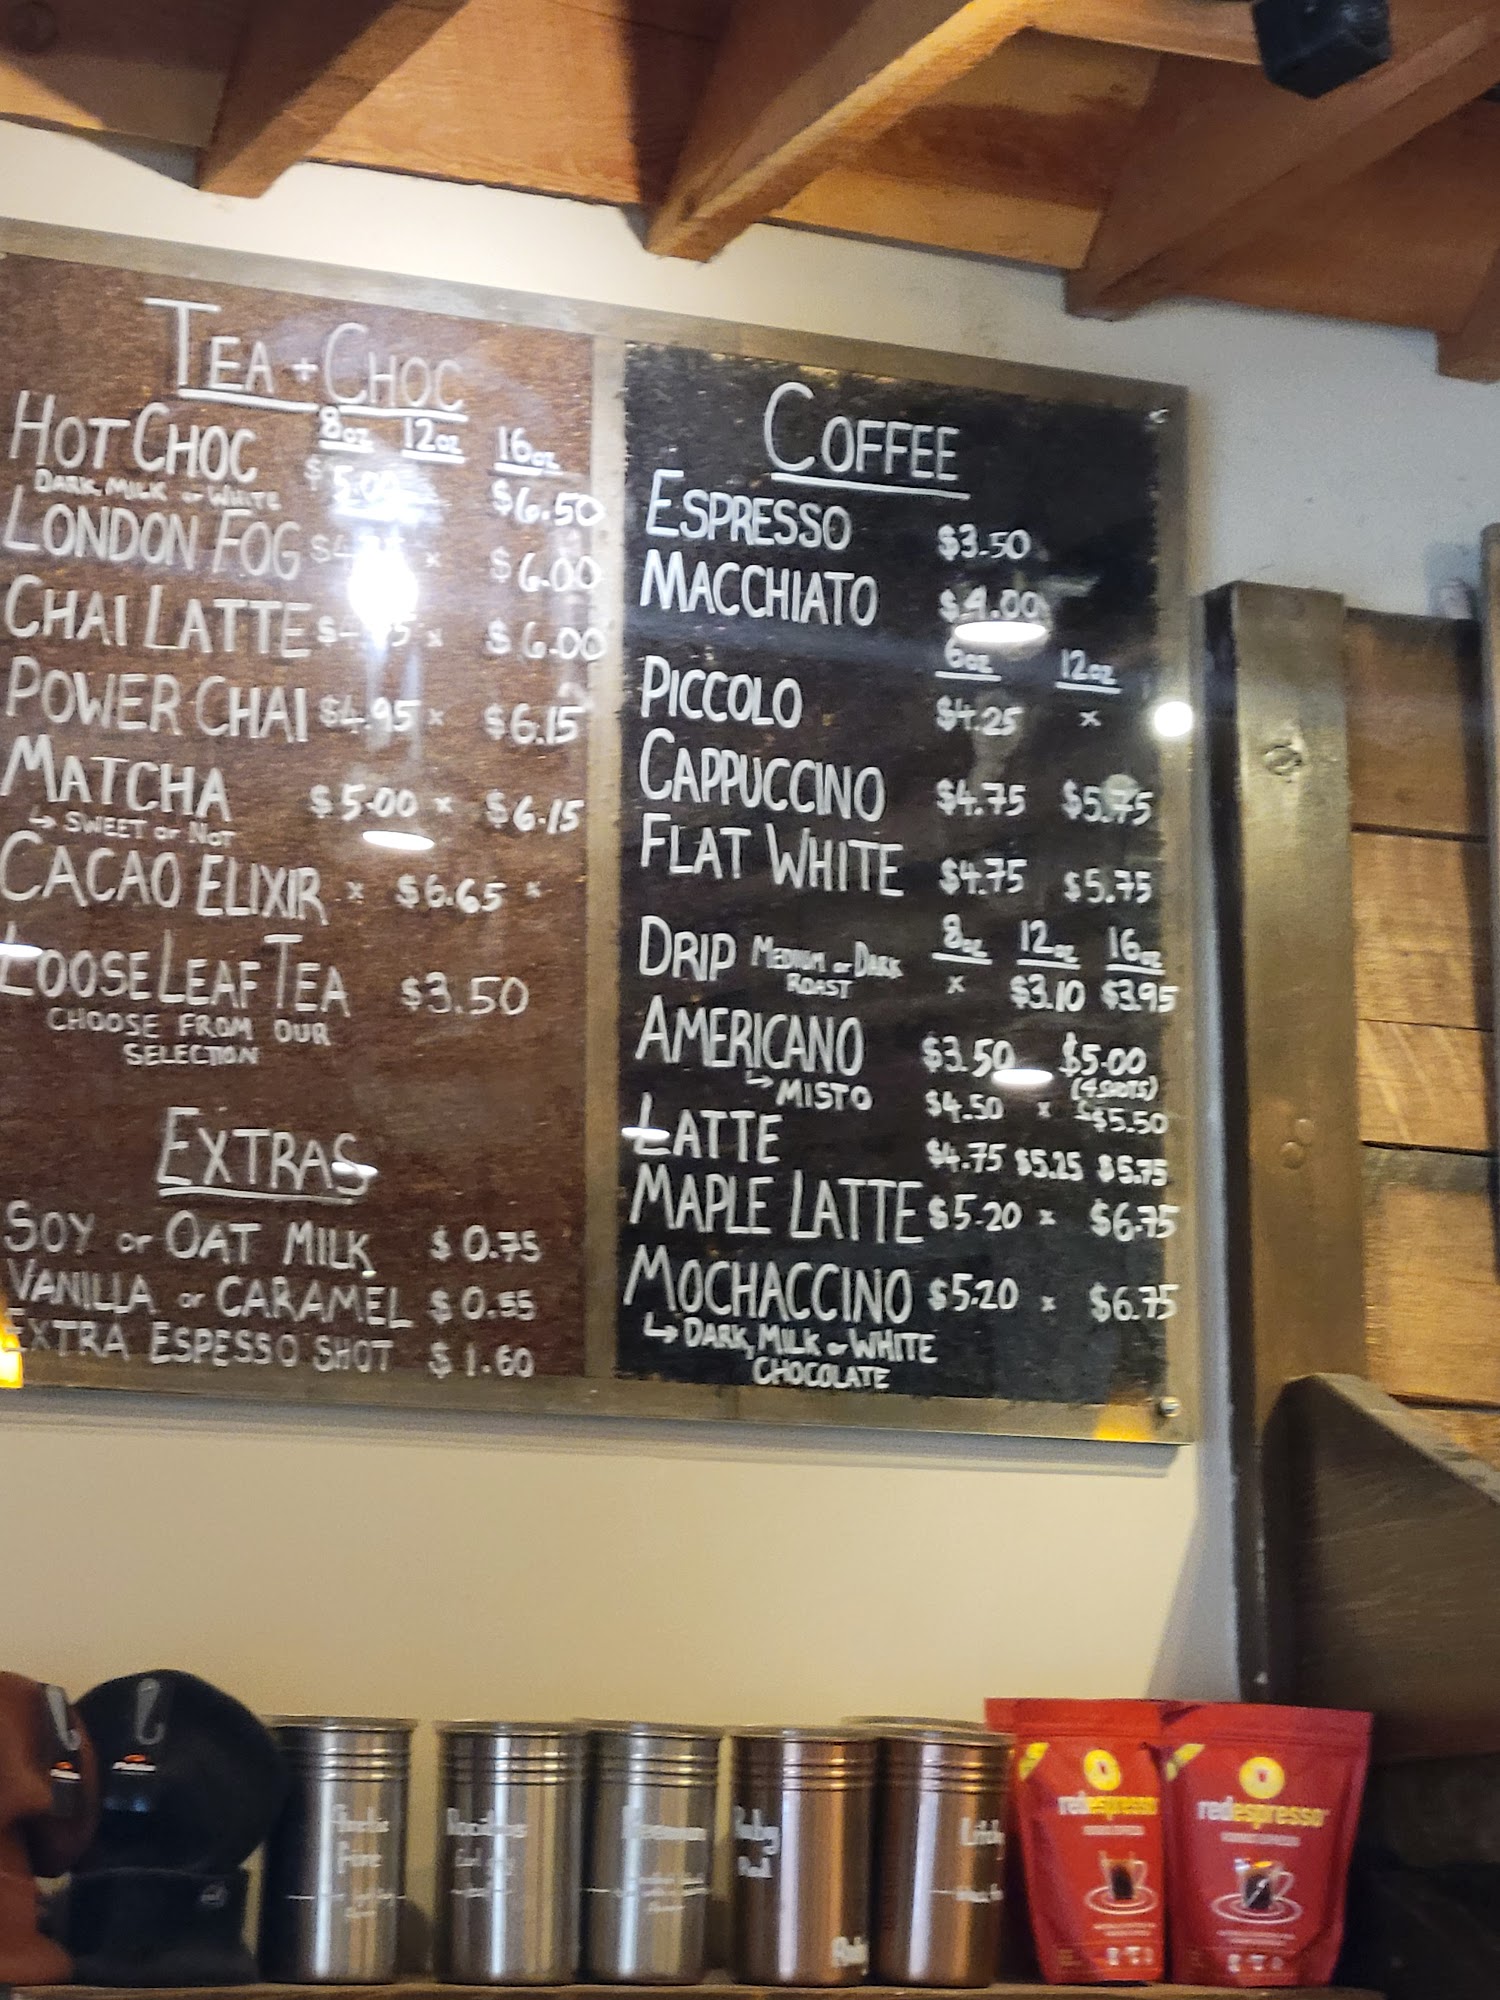 TEA + CHOC
8oz 12oz 16oz
HOT CHOC $5.00 $6.50
DARK, MILK or WHITE
LONDON FOG x $6.00
CHAI LATTE x $6.00
POWER CHAI $4.95 x $6.15
MATCHA $5.00 x $6.15
↳ SWEET or NOT
CACAO ELIXIR x $6.65 x
LOOSE LEAF TEA $3.50
CHOOSE FROM OUR
SELECTION
EXTRAS
SOY or OAT MILK $0.75
VANILLA or CARAMEL $0.55
EXTRA ESPESSO SHOT $1.60
COFFEE
ESPRESSO $3.50
MACCHIATO $4.00
6oz 12oz
PICCOLO $4.25 x
CAPPUCCINO $4.75 $5.75
FLAT WHITE $4.75 $5.75
8oz 12oz 16oz
DRIP MEDIUM or DARK
ROAST x $3.10 $3.95
AMERICANO $3.50 $5.00
(4 SHOTS)
↳ MISTO $4.50 x $5.50
LATTE $4.75 $5.25 $5.75
MAPLE LATTE $5.20 x $6.75
MOCHACCINO $5.20 x $6.75
↳ DARK, MILK or WHITE
CHOCOLATE
redespresso
redespresso